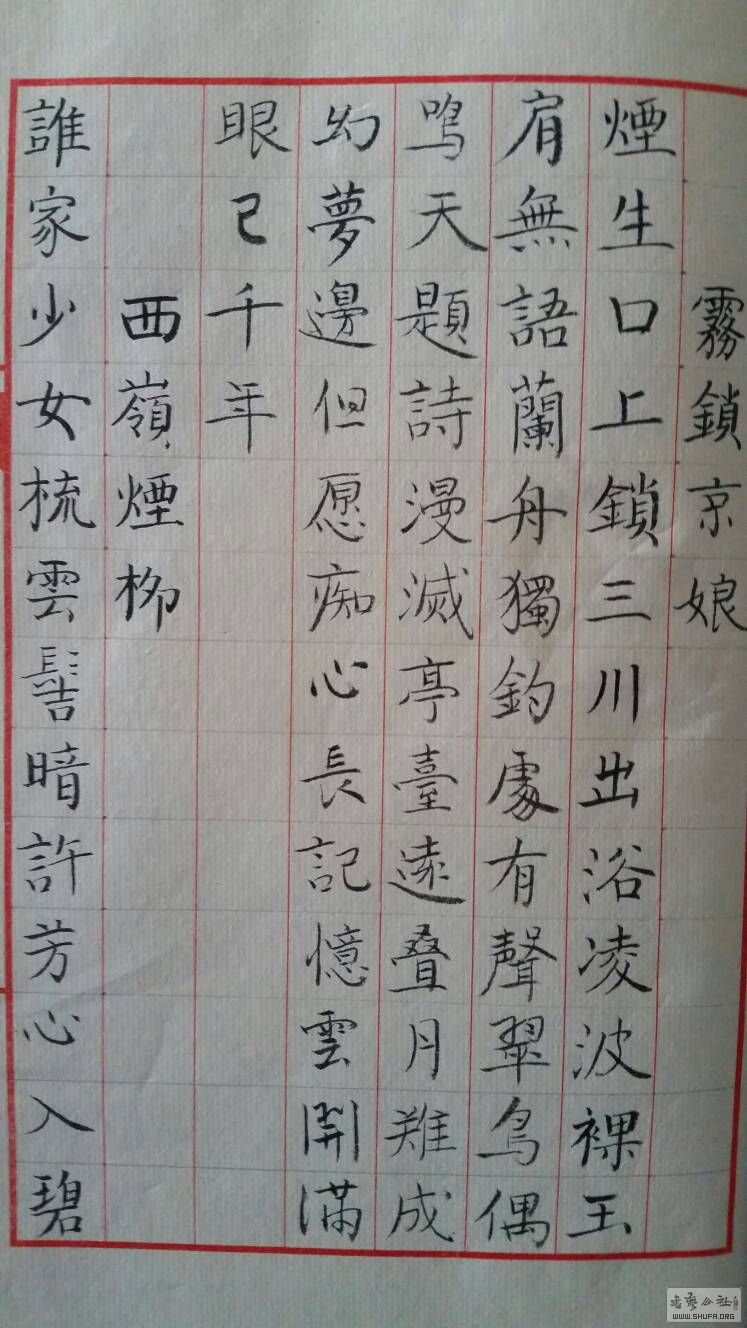 霧鎖京娘
煙生口上鎖三川出浴凌波裸玉
肩無語蘭舟獨釣處有聲翠鳥偶
鳴天題詩漫滅亭臺遠叠月難成
幻夢邊但愿痴心長記憶雲開滿
眼已千年
西嶺煙柳
誰家少女梳雲髻暗許芳心入碧
WWW.SHUFA.ORG